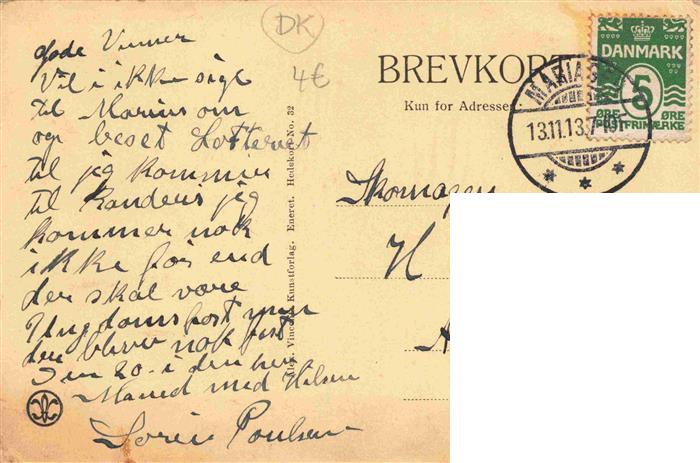 gode Venner
Vil i ikke sige
til Marius om
og beset Lotteriet
til jeg kommer
til Randers jeg
kommer nok
ikke før end
der skal være
Ungdomsfest men
der bliver nok fest
den 20. i denher
Maned med Hilsen
Søren Poulsen
DK
4€
Alex. Vincents Kunstforlag. Eneret. Hedeskov No. 32
BREVKORT
Kun for Adressen.
MARIAGER
13.11.13.
DANMARK
5
ØRE ØRE
POSTFRIMÆRKE
Skomager
H
A